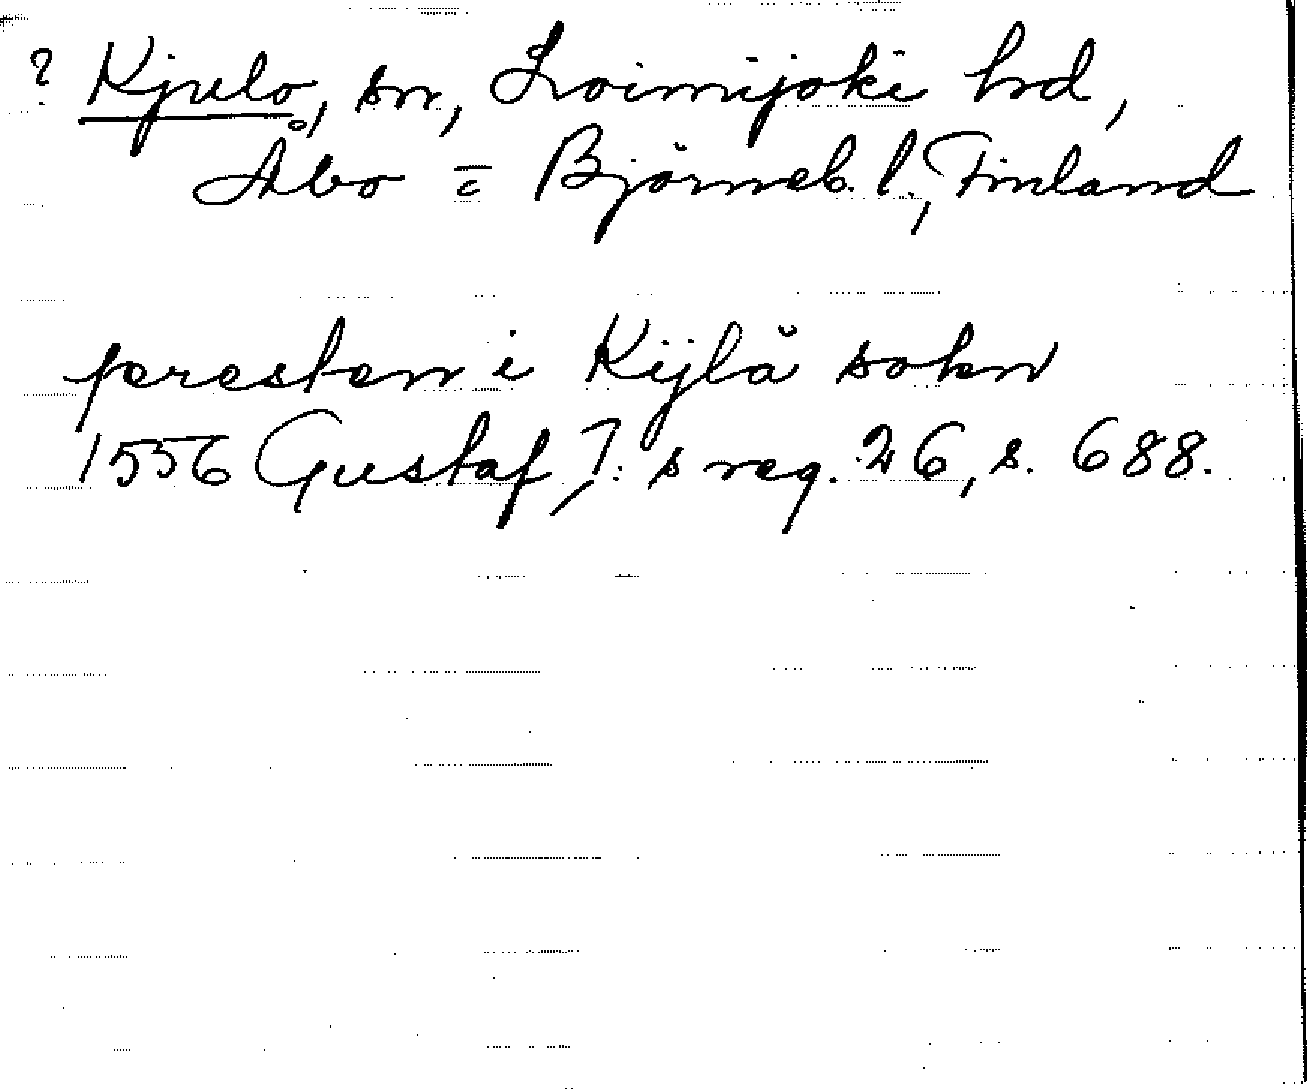 ? Kjulo, sn, Loimijoki hrd,
Åbo = Björneb. l., Finland
presten i Kijlå sokn
1556 Gustaf I: s reg. 26, s. 688.